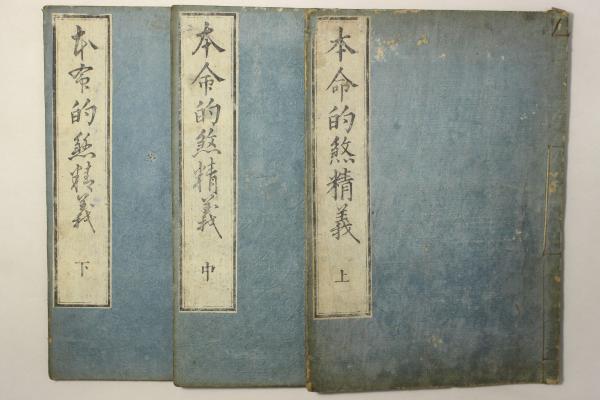 本命的煞精義
上
本命的煞精義
中
本命的煞精義
下